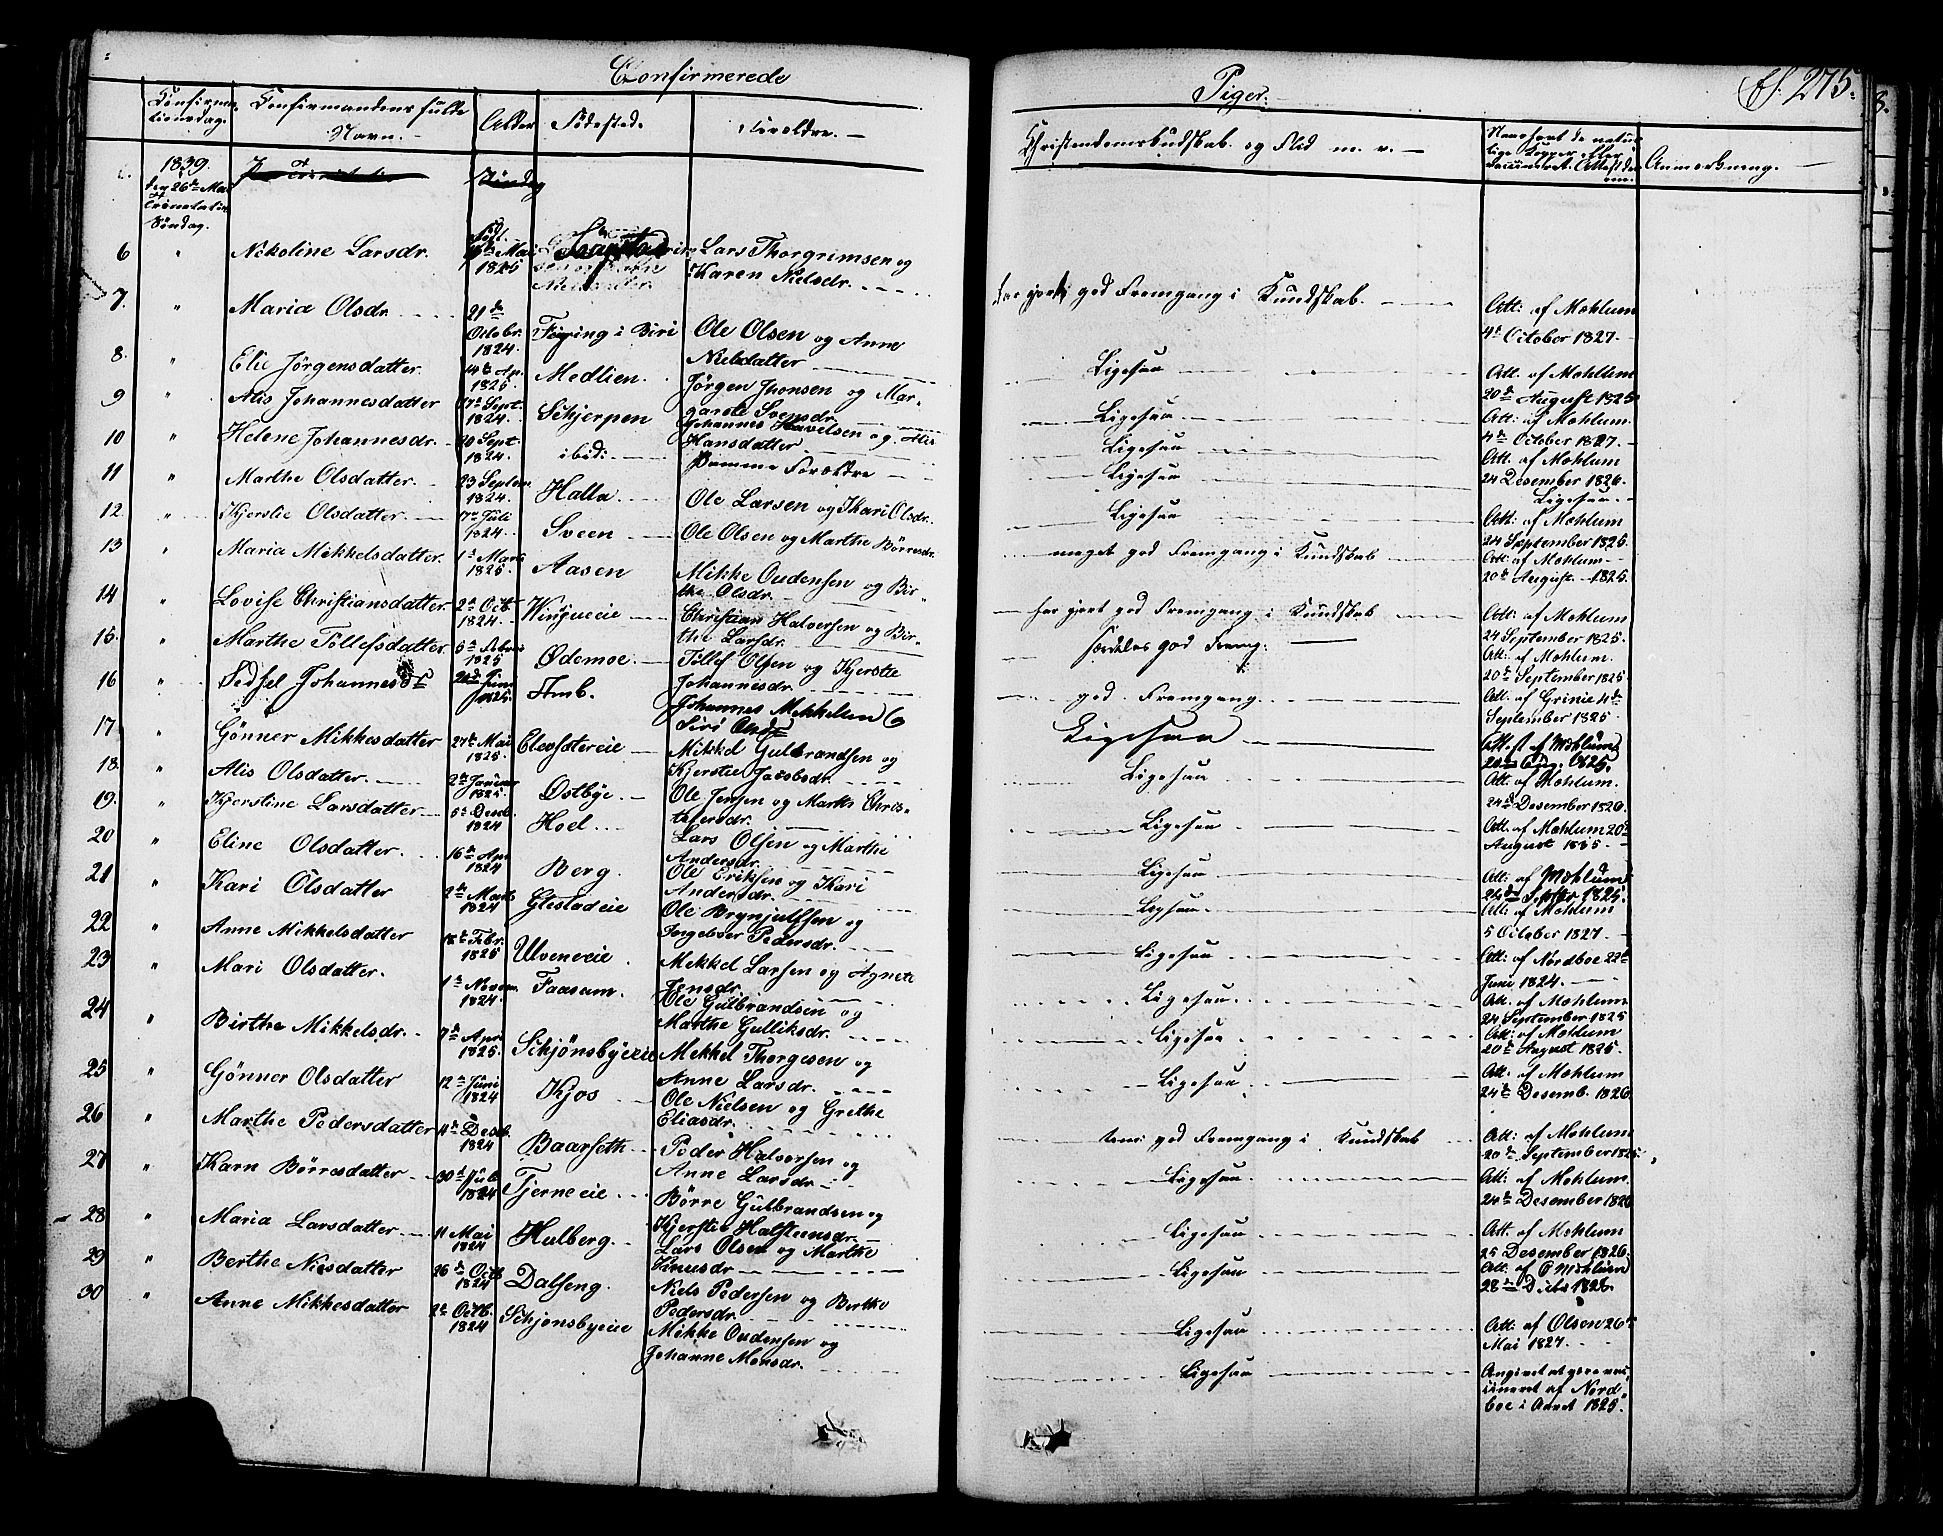 Confirmerede Piger. S. 275.
Confirmandens fulde Navn. Alder Födested. Forældre.
Christendomskundskab og Flid m. v. Anmærkning.
1839.
den 26de Mai
Trinitatis
Söndag.
6 " Nikoline Larsdr. Mai 1825 Lars Thorgrimsen og
Karen Nielsdr.
god Fremgang i Kundskab.
7. " Maria Olsdr. 21de Octobr. 1824. i Biri Ole Olsen og Anne
Nielsdatter
Ligesaa Att: af Mæhlum
4de October 1827.
8. " Elie Jörgensdatter. 14de Ap. 1825 Medlien. Jörgen Jvonsen og Mar-
garete Svensdr.
Ligesaa Att. af Mæhlum
20de August 1825
9 " Alis Johannesdatter 17de Sept. 1824. Schjerpen Johannes Pavelsen og Alis
Hansdatter
Ligesaa Att: af Mæhlum
4de October 1827.
10 " Helene Johannesdr. 10 Sept. 1824. ibid: Samme Forældre
Ligesaa Att. af Mæhlum
24 Desember 1826.
11 " Marthe Olsdatter. 23 Septem. 1824. Halla. Ole Larsen og Kari Olsdr.
Ligesaa. Ligesaa.
12. " Kjerstie Olsdatter. 7de Juli 1824. Sveen Ole Olsen og Marthe Börresdr.
meget god Fremgang i Kundskab Att: af Mæhlum
24 September 1826.
13 " Maria Mikkelsdatter. 1ste Marts 1825. Aasen Mikke Oudensen og Bir-
the Olsdr.
har gjort god Fremgang i Kundskab Att: af Mæhlum
20de August 1825.
14 " Lovise Christiansdatter. 2de Oct. 1824. Wingueeie Christian Halvorsen og Bir-
the Larsdr.
særdeles god Fremg: Att: af Mæhlum
24 September 1825.
15. " Marthe Tollefsdatter 5te Febr. 1825 Ödemoe. Tollef Olsen og Kjerstie
Johannesdr.
god Fremgang. Att: af Mæhlum.
20de September 1825
16 " Sidsel Johannesdr 24de Juni 1825. Amb. Johannes Mikkelsen og
Siri Olsdr
Ligesaa Att. af Grinie 4de
September 1825.
17. " Gönner Mikkesdatter 27de Mai 1825. Elevsætereie Mikkel Gulbrandsen og
Kjerstie Jacobsdr.
Ligesaa Attest af Mæhlum
20de Aug. 1825.
18. " Alis Olsdatter. 2de Januar 1825. Östbye. Ole Jensen og Marthe Chris-
tophersdr.
Ligesaa Att. af Mæhlum.
24de Desember 1826.
19. " Kjerstine Larsdatter 5te Desb. 1824 Hoel Lars Olsen og Marthe
Andersdr.
Ligesaa Att. af Mæhlum 20de
August 1825.
20 " Eline Olsdatter. 16de Apr 1824 Berg. Ole Eriksen og Kari
Andersdr.
Ligesaa. Att: af Mæhlum
24de Septbr 1825.
21 " Kari Olsdatter 2de Marts 1824 Glestadeie Ole Brynjulfsen og
Ingeborr Pedersdr.
Ligesaa Att: af Mæhlum
5 October 1827.
22 " Anne Mikkelsdatter 18de Febr. 1825 Ulveneeie. Mekkel Larsen og Agnete
Jensdr.
Ligesaa. Att: af Nordboe 22de
Juni 1824.
23 " Mari Olsdatter. 1ste Novem. 1824. Faasum. Ole Gulbrandsen og
Marthe Gulliksdr.
Ligesaa Att. af Mæhlum
24 September 1825
24 " Birthe Mikkelsdr. 7de Apr. 1825. Schjönsbyeeie Mekkel Thorgesen og
Anne Larsdr.
Ligesaa Att: af Mæhlum
20de August 1825.
25 " Gönner Olsdatter 12te Juni 1824 Kjos Ole Nielsen og Grethe
Eliasdr.
god Fremgang i Kundskab Att: af Mæhlum
24de Desemb. 1826.
26 " Marthe Pedersdatter 11te Desb. 1824 Baarseth Peder Halvorsen og
Anne Larsdr.
Ligesaa Att: af Mæhlum
20de September 1825
27 " Karn Börresdatter 30de Juli 1824 Tjerneeie Börre Gulbrandsen og
Kjerstie Halsteensdr.
Ligesaa Att. af Mæhlum.
24de Desember 1826
28 " Maria Larsdatter 11 Mai 1824 Hulberg. Lars Olsen og Marthe
Knusdr
Ligesaa. Att. af Mæhlum
25 Desember 1826.
29 " Berthe Nielsdatter 26de Octb 1824 Dalseng. Niels Pedersen og Berthe
Pedersdr.
Ligesaa Att: af Olsen 26de
Mai 1827.
30 " Anne Mikkesdatter 2de Octb. 1824 Schjensbyeeie Mikke Oudensen og
Johanne Monsdr.
Ligesaa Angivet at være vac-
cineret af Nord-
boe i Aaret 1825.